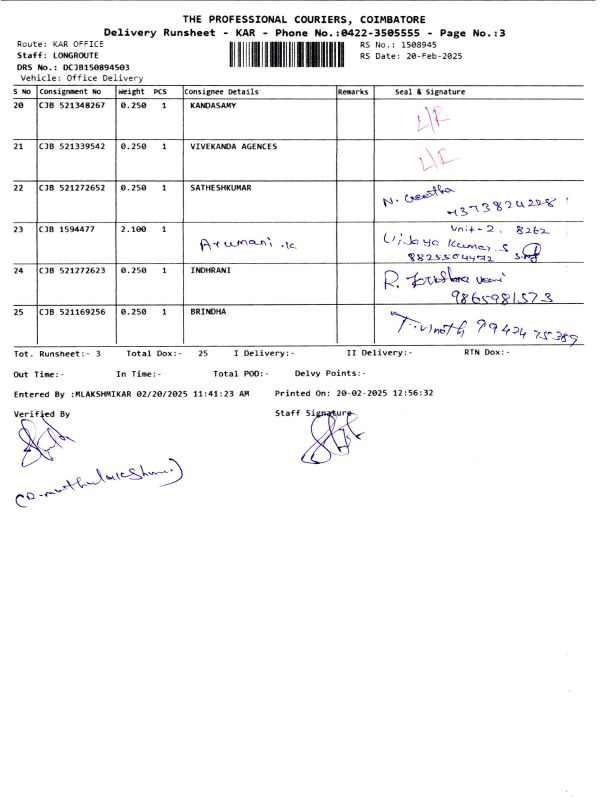 THE PROFESSIONAL COURIERS, COIMBATORE
Delivery Runsheet - KAR - Phone No.:0422-3505555 - Page No.:3
Route: KAR OFFICE RS No.: 1508945
Staff: LONGROUTE RS Date: 20-Feb-2025
DRS No.: DCJB150894503
Vehicle: Office Delivery
S No Consignment No Weight PCS Consignee Details Remarks Seal & Signature
20 CJB 521348267 0.250 1 KANDASAMY L/R
21 CJB 521339542 0.250 1 VIVEKANDA AGENCES L/R
22 CJB 521272652 0.250 1 SATHESHKUMAR N. Geetha
23 CJB 1594477 2.100 1 Arumani .K unit-2. 8262
Vijaya Kumar. S
24 CJB 521272623 0.250 1 INDHRANI R.
9865981573
25 CJB 521169256 0.250 1 BRINDHA T. vinoth 79424 75389
Tot. Runsheet:- 3 Total Dox:- 25 I Delivery:- II Delivery:- RTN Dox:-
Out Time:- In Time:- Total POD:- Delvy Points:-
Entered By :MLAKSHMIKAR 02/20/2025 11:41:23 AM Printed On: 20-02-2025 12:56:32
Verified By Staff Signature